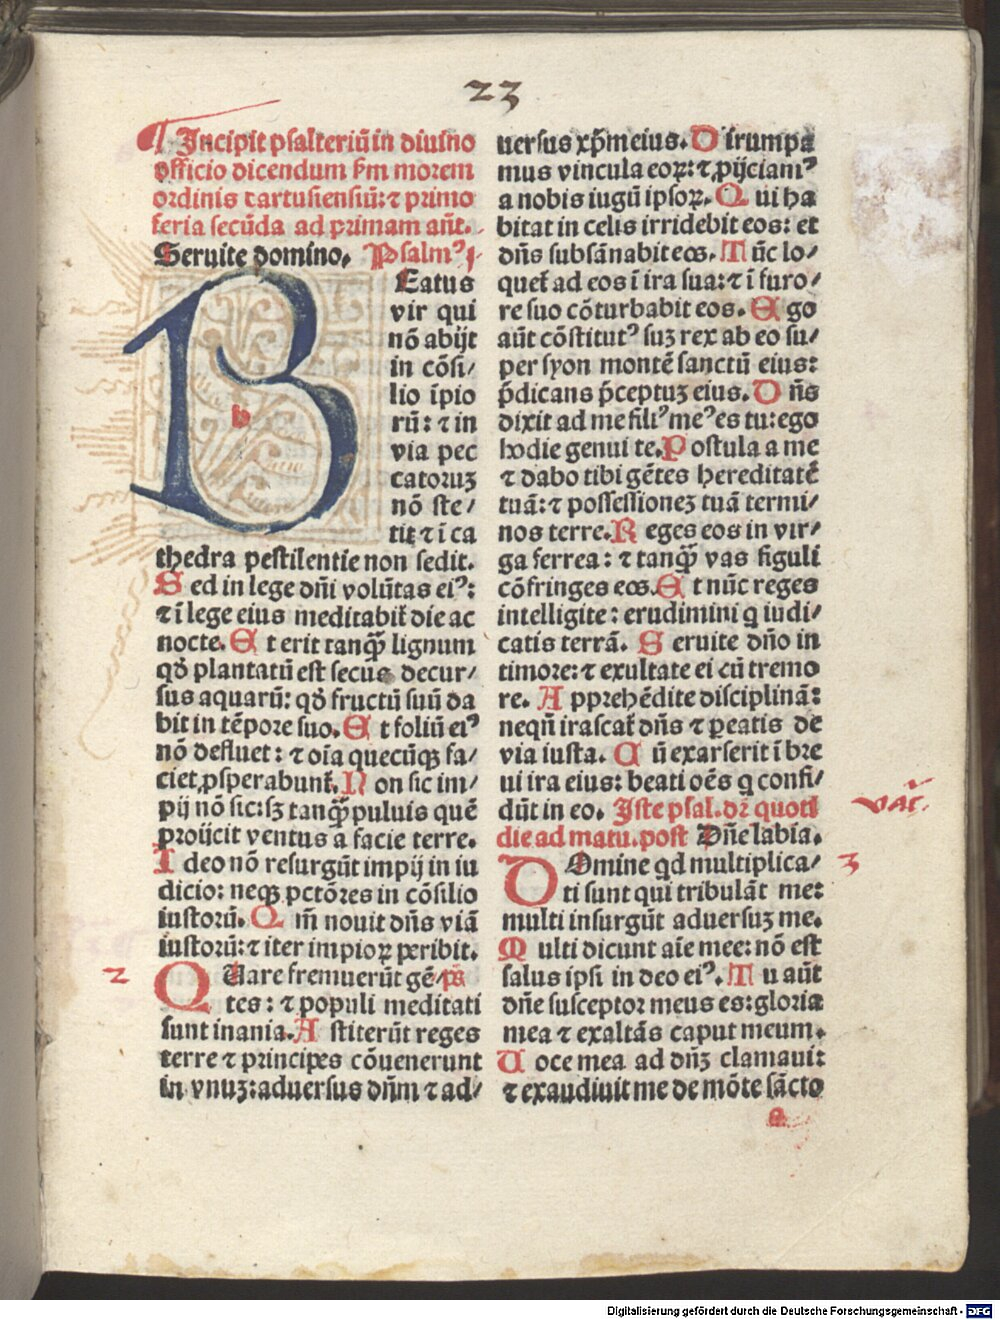 23
¶ Incipit psalteriū in diuino
officio dicendum ẜm morem
ordinis cartusiensiū: ⁊ primo
feria secūda ad primam añt.
Seruite domino. Psalmꝰ 1
BEatus
vir qui
nō abijt
in cōsi/
lio īpio
rū: ⁊ in
via pec
catoruꝫ
nō ste/
tit ⁊ ī ca
thedra pestilentie non sedit.
Sed in lege dñi volūtas eiꝰ:
⁊ ī lege eius meditabit̉ die ac
nocte. Et erit tanqͣꝫ lignum
qḋ plantatū est secus decur/
sus aquarū: qḋ fructū suū da
bit in tēpore suo. Et foliū eiꝰ
nō defluet: ⁊ oīa quecūqꝫ fa/
ciet ꝓsperabunt̉. Non sic im/
pij nō sic: sꝫ tanqͣꝫ puluis quē
proijcit ventus a facie terre.
Ideo nō resurgūt impij in iu
dicio: neqꝫ pctōres in cōsilio
iustorū. Qm̄ nouit dñs viā
iustorū: ⁊ iter impioꝝ peribit.
2 QUare fremuerūt gē/ ps̄
tes: ⁊ populi meditati
sunt inania. Astiterūt reges
terre ⁊ principes cōuenerunt
in vnuꝫ: aduersus dñm ⁊ ad/
uersus xp̄m eius. Dirumpa
mus vincula eoꝝ: ⁊ ꝓijciamꝰ
a nobis iugū ipsoꝝ. Qui ha
bitat in celis irridebit eos: et
dñs subsānabit eos. Tūc lo/
quet̉ ad eos ī ira sua: ⁊ ī furo/
re suo cōturbabit eos. Ego
aūt cōstitutꝰ suꝫ rex ab eo su/
per syon montē sanctū eius:
p̄dicans p̄ceptuꝫ eius. Dñs
dixit ad me filiꝰ meꝰ es tu: ego
hodie genui te. Postula a me
⁊ dabo tibi gētes hereditatē
tuā: ⁊ possessioneꝫ tuā termi/
nos terre. Reges eos in vir/
ga ferrea: ⁊ tanqͣꝫ vas figuli
cōfringes eos. Et nūc reges
intelligite: erudimini q̄ iudi/
catis terrā. Seruite dño in
timore: ⁊ exultate ei cū tremo
re. Apprehēdite disciplinā:
neqñ irascat̉ dñs ⁊ ꝑeatis de
via iusta. Cū exarserit ī bre
ui ira eius: beati oēs q̄ confi/
dūt in eo. Iste psal. dꝛ̄ quoti
die ad matu. post Dñe labia.
vac̄.
3 DOmine qd multiplica/
ti sunt qui tribulāt me:
multi insurgūt aduersuꝫ me.
Multi dicunt aīe mee: nō est
salus ipsi in deo eiꝰ. Tu aūt
dñe susceptor meus es: gloria
mea ⁊ exaltās caput meum.
Uoce mea ad dñꝫ clamaui:
⁊ exaudiuit me de mōte sācto
a
Digitalisierung gefördert durch die Deutsche Forschungsgemeinschaft - DFG